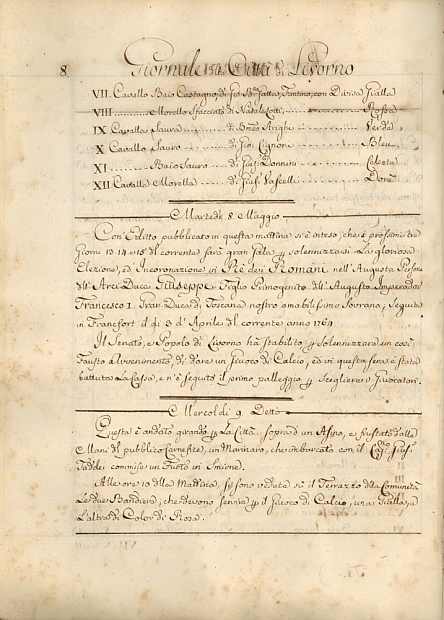 8 Giornale della Città di Livorno
VII. Cavallo Baio Castagno, di Gio: Bta Gattea, Fantino, con Divisa Gialla
VIII Morello Sfacciato di Natale ........ Rossa
IX Cavallo Sauro ........ di Bmeo Arighi ........ Verde
X Cavallo Sauro ........ di Gio: Cignoni ........ Bleu
XI ........ Baio Sauro ........ di Gius: Donnini ........ Celeste
XII Cavalla Morella ........ di Gius: Vascelli ........ Doré
Martedì 8 Maggio
Con Editto pubblicato in questa mattina si è inteso, che i prossimi tre
Giorni 13. 14. e 15 del corrente sarà gran Gala p solennizzarsi La gloriosa
Elezione, ed Incoronazione in Rè dei Romani nell'Augusta Persona
dll' Arci Duca Giuseppe Figlio Primogenito dll' Augusto Imperadore
Francesco I. Gran Duca di Toscana nostro amabilissimo Sovrano, Seguita
in Francfort il dì 3 d'Aprile dl corrente anno 1764
Il Senato, e Popolo di Livorno hà stabilito p Solennizzare un così
Fausto Avvenimento, di dare un Giuoco di Calcio, ed in questa sera è stata
battuta La Cassa, e n'è seguito il primo palleggio p scegliere i Giuocatori.
Mercoldì 9 Detto
Questa è andato girando p La Città, sopra d'un Asino, e frustato dalle
Mani dl pubblico Carnefice, un Marinaro, che imbarcato con il Capno Gius:
Taddei commise un Furto in Smirne.
Alle ore 10 dlla Mattina, si sono vedute sù il Terrazzo dlla Comunità
Le due Bandiere, che devono servire p il Giuoco di Calcio, una Gialla, e
L'altra di Color di Rosa.